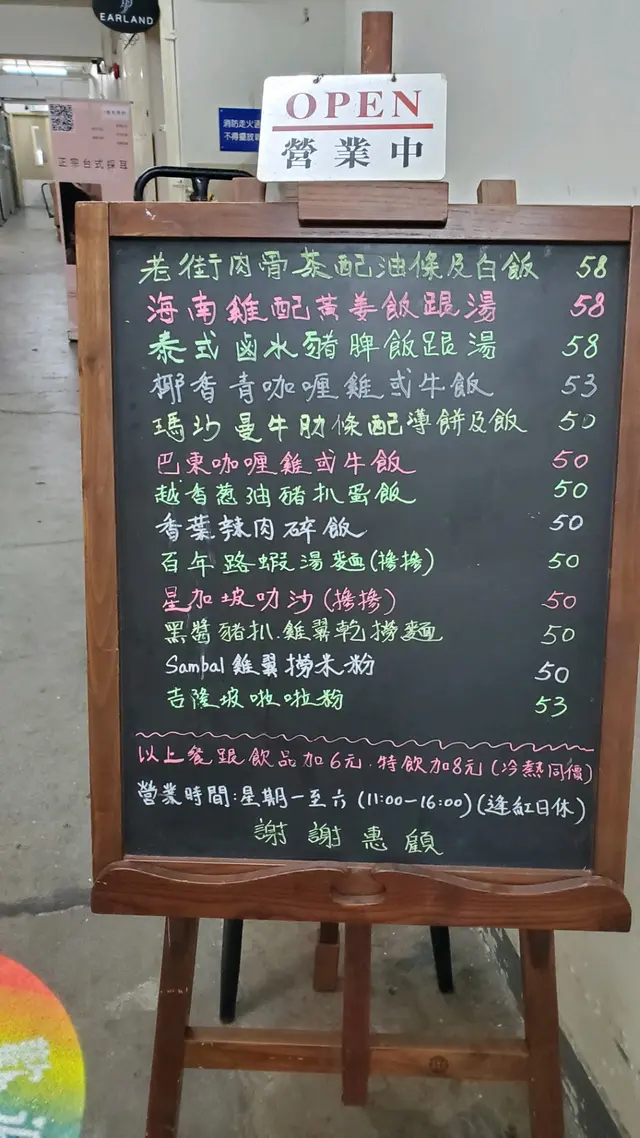 EARLAND
正宗台式採耳
消防走火通
不得擺放
OPEN
營業中
老街肉骨茶配油條及白飯 58
海南雞配黃姜飯跟湯 58
泰式鹵水豬脾飯跟湯 58
椰香青咖喱雞或牛飯 53
瑪沙曼牛肋條配薄餅及飯 50
巴東咖喱雞或牛飯 50
越香蔥油豬扒蛋飯 50
香葉辣肉碎飯 50
百年路蝦湯麵(擔擔) 50
星加坡叻沙(擔擔) 50
黑醬豬扒.雞翼乾撈麵 50
Sambal 雞翼撈米粉 50
吉隆坡啦啦粉 53
以上餐跟飲品加6元.特飲加8元(冷熱同價)
營業時間:星期一至六 (11:00-16:00)(逢紅日休)
謝謝惠顧